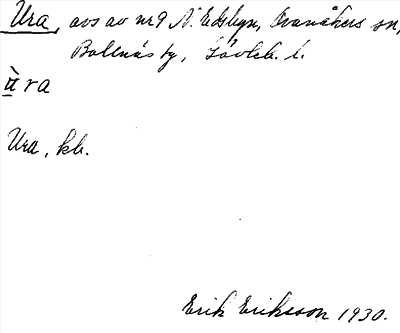 Ura, avs av nr 9 N. Edsbyn, Ovanåkers sn,
Bollnäs tg, Gävleb. l.
ùra
Ura, kb.
Erik Eriksson 1930.